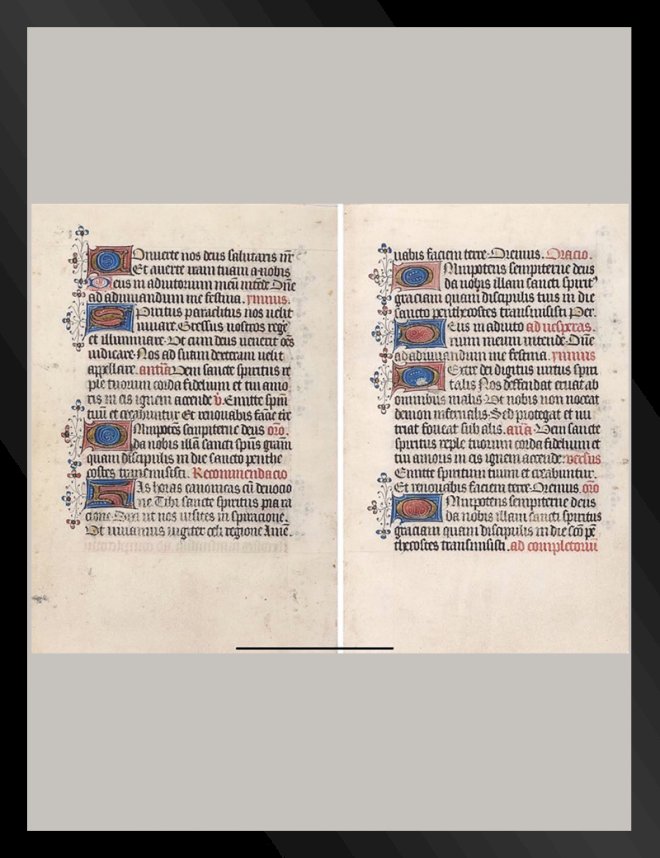 Onuerte nos deus salutaris nr̄
Et auerte iram tuam a nobis
Deus in adiutorium meū intēde Dn̄e
ad adiuuandum me festina. ymnus.
Spiritus paraclitus nos uelit
iuuare. Gressus nostros rege
et illuminare. Ut cum deus uenerit oēs
iudicare. Nos ad suam dexteram uelit
appellare. antiā. Ueni sancte spiritus re
ple tuorum corda fidelium et tui amo
ris in eis ignem accende v̄. Emitte spm̄
tuū et creabuntur Et renouabis faciē tr̄e
Omnipotēs sempiterne deus oro.
da nobis illā sancti spūs gratiā
quam discipulis in die sancto penthe
costes transmisisti. Recomendacio
Has horas canonicas cū deuocio
ne Tibi sancte spiritus pia ra
cione Dixi ut nos uisites inspiracione.
Ut uiuamus iugiter celi regione Amē.
uabis faciem terre. Oremus. Oracio.
Omnipotens sempiterne deus
da nobis illam sancti spirit9
graciam quam discipulis tuis in die
sancto penthecostes transmisisti Per.
Deus in adiuto ad uesperas.
rium meum intende. Dn̄e
ad adiuuandum me festina. ymnus
Dextre dei digitus uirtus spiri
talis Nos deffendat eruat ab
omnibus malis. Ut nobis non noceat
demon infernalis. Sed protegat et nu
triat foueat sub alis. anā. Ueni sancte
spiritus reple tuorum corda fidelium et
tui amoris in eis ignem accende. uersus
Emitte spiritum tuum et creabuntur.
Et renouabis faciem terre. Oremus. oro
Omnipotens sempiterne deus
da nobis illam sancti spiritus
graciam quam discipulis in die scō pē
thecostes transmisisti. ad completoriū